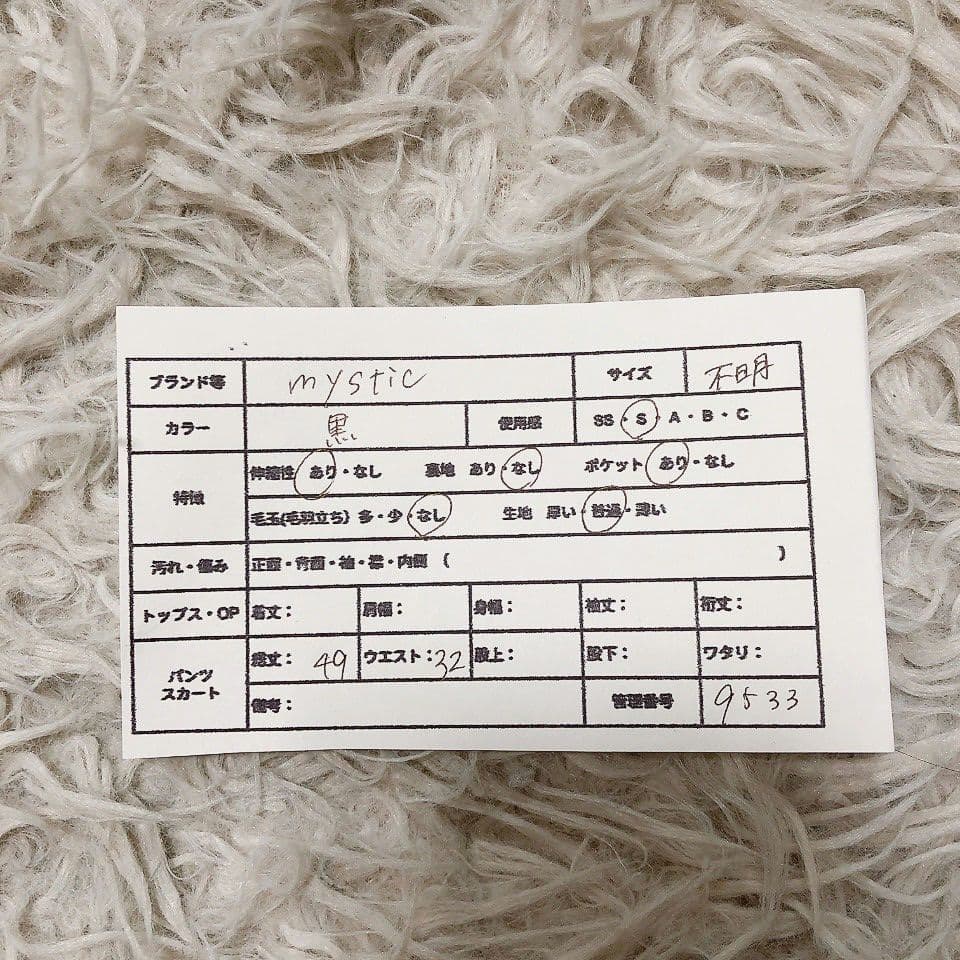 ブランド等 mystic サイズ 不明
カラー 黒 使用感 SS・S・A・B・C
特徴
伸縮性 あり・なし 裏地 あり・なし ポケット あり・なし
毛玉(毛羽立ち) 多・少・なし 生地 厚い・普通・薄い
汚れ・傷み 正面・背面・袖・襟・内側 ( )
トップス・OP 着丈: 肩幅: 身幅: 袖丈: 裄丈:
パンツ
スカート
総丈: 49 ウエスト:32 股上: 股下: ワタリ:
備考: 管理番号 9533